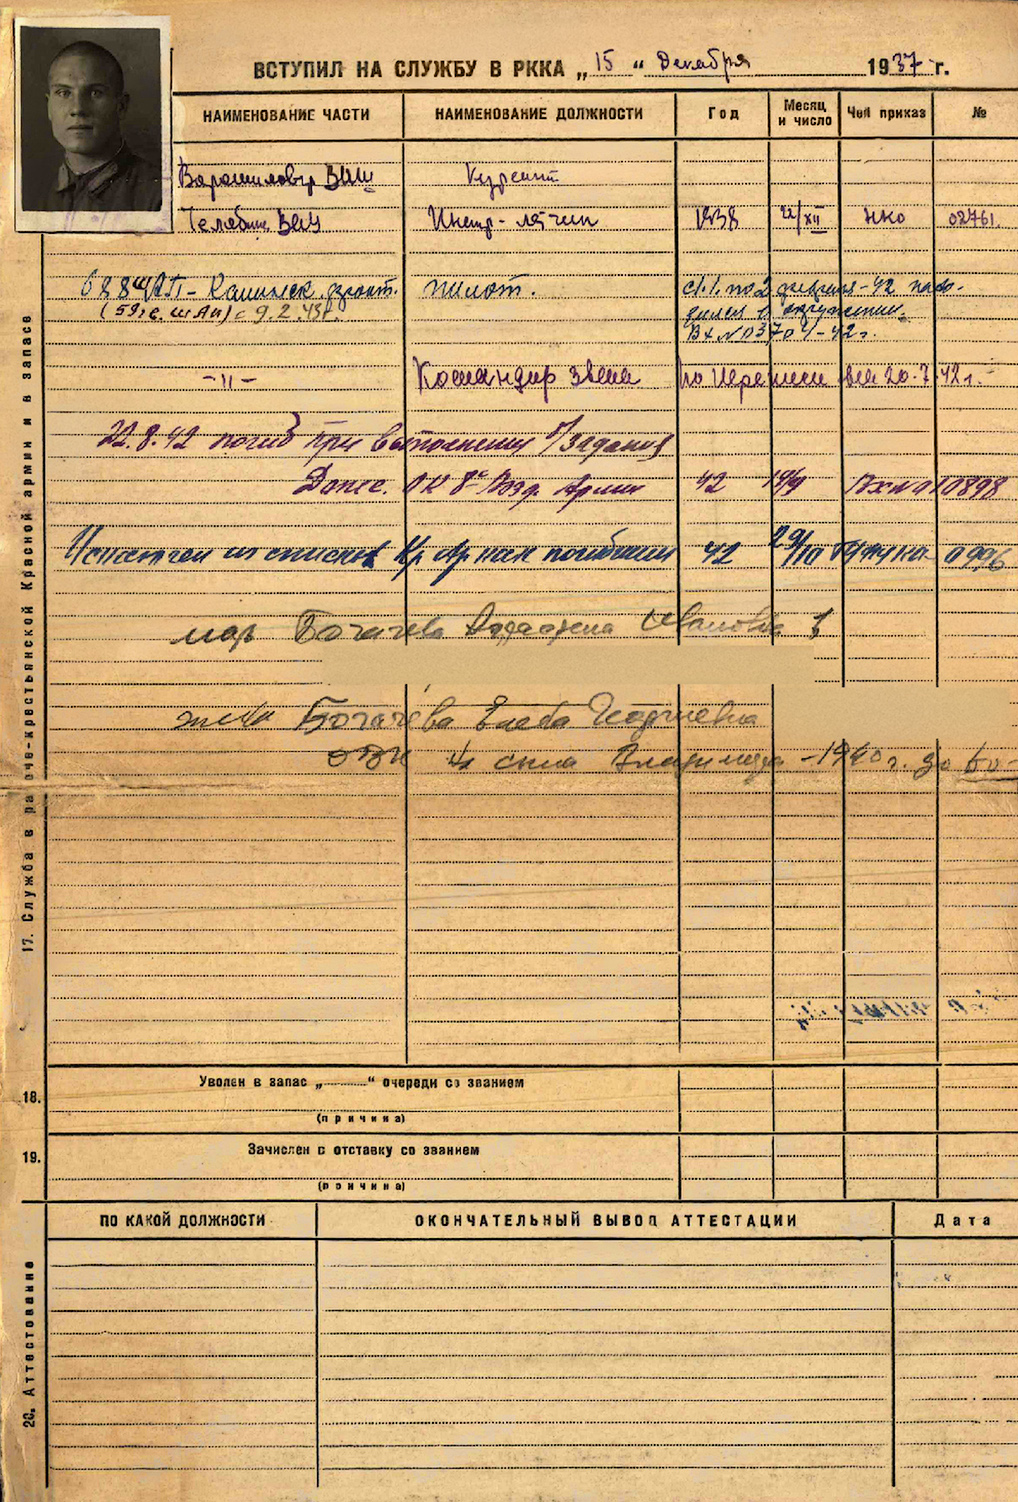 ВСТУПИЛ НА СЛУЖБУ В РККА „15“ Декабря 1937 г.
НАИМЕНОВАНИЕ ЧАСТИ НАИМЕНОВАНИЕ ДОЛЖНОСТИ Год Месяц и число Чей приказ №
Ворошиловгр ВШ Курсант
Челябин. 1938 22/XII НКО 02761.
688 ШАП - Калининск. фронт. пилот. с 1.1. по 2 февраля - 42 нахо-
(59 гв. шАп) с 9.2.43г. дился в окружении.
Вх № 03704 - 42г.
-"- Командир звена по Переписи 20.7.42г.
22.8.42 погиб при выполнении б/задания
Донес. ОК 8й Возд. Армии 42 Вх № 10898
Исключен из списков Кр Арм как погибший 42 29/10 0996
мать Богачева Ивановна
жена Богачёва Георгиевна
сына Владимира - 1940 г.
17. Служба в рабоче-крестьянской Красной армии и в запасе
18. Уволен в запас „ “ очереди со званием
(причина)
19. Зачислен в отставку со званием
(причина)
ПО КАКОЙ ДОЛЖНОСТИ ОКОНЧАТЕЛЬНЫЙ ВЫВОД АТТЕСТАЦИИ Дата
20. Аттестование